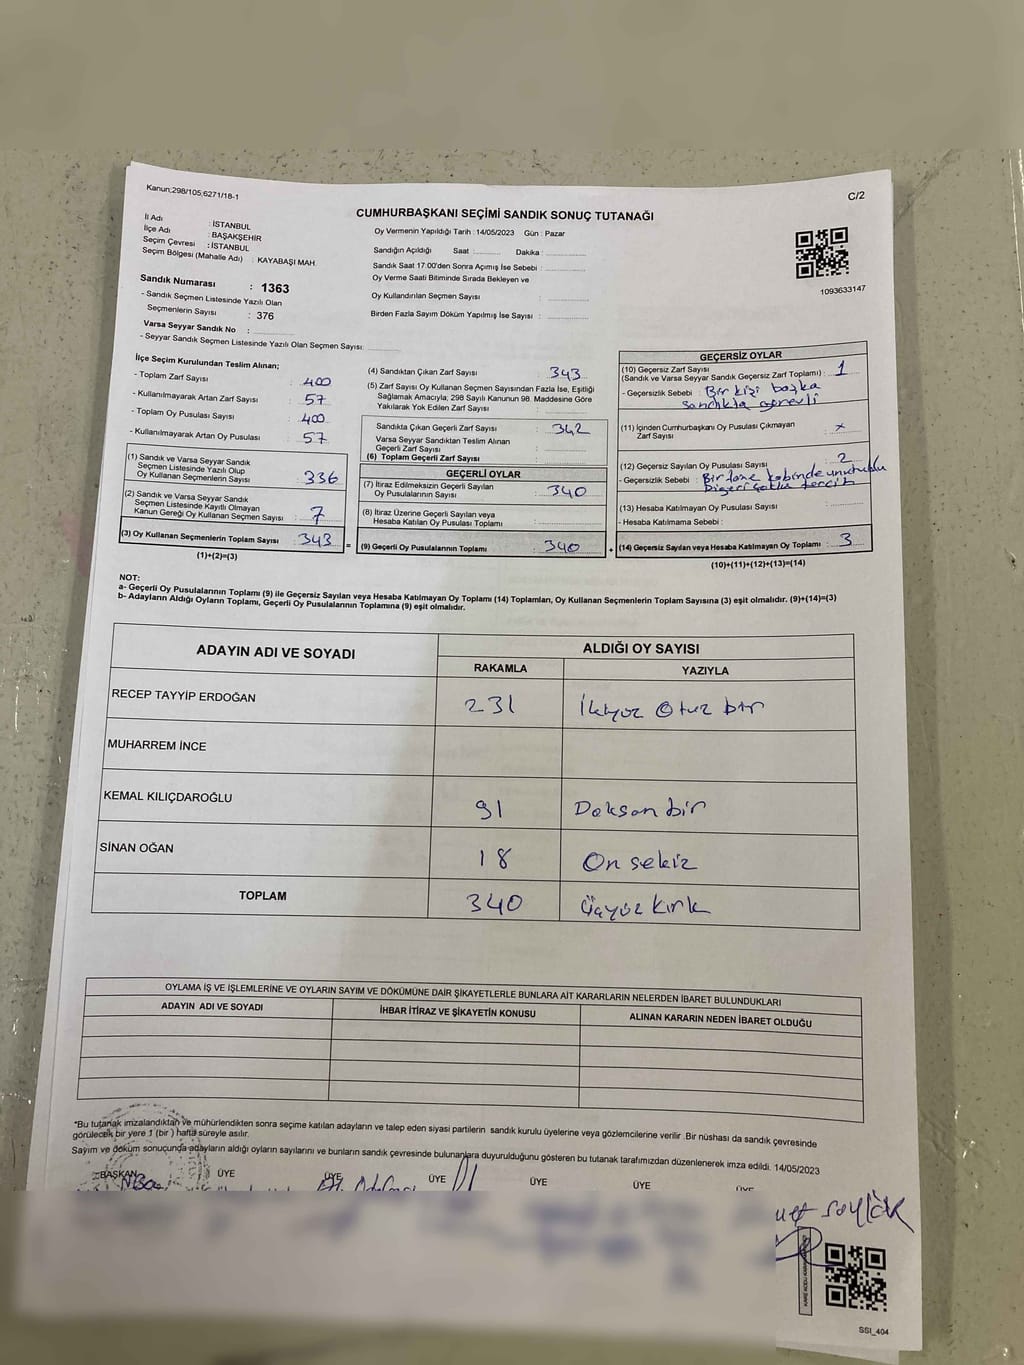 Kanun:298/105,6271/18-1
C/2
CUMHURBAŞKANI SEÇİMİ SANDIK SONUÇ TUTANAĞI
İl Adı : İSTANBUL
İlçe Adı : BAŞAKŞEHİR
Seçim Çevresi : İSTANBUL
Seçim Bölgesi (Mahalle Adı) : KAYABAŞI MAH.
Sandık Numarası : 1363
- Sandık Seçmen Listesinde Yazılı Olan
Seçmenlerin Sayısı : 376
Varsa Seyyar Sandık No :
- Seyyar Sandık Seçmen Listesinde Yazılı Olan Seçmen Sayısı:
Oy Vermenin Yapıldığı Tarih : 14/05/2023 Gün : Pazar
Sandığın Açıldığı Saat : Dakika :
Sandık Saat 17.00'den Sonra Açılmış İse Sebebi :
Oy Verme Saati Bitiminde Sırada Bekleyen ve
Oy Kullandırılan Seçmen Sayısı :
Birden Fazla Sayım Döküm Yapılmış İse Sayısı :
1093633147
İlçe Seçim Kurulundan Teslim Alınan;
- Toplam Zarf Sayısı : 400
- Kullanılmayarak Artan Zarf Sayısı : 57
- Toplam Oy Pusulası Sayısı : 400
- Kullanılmayarak Artan Oy Pusulası : 57
(1) Sandık ve Varsa Seyyar Sandık
Seçmen Listesinde Yazılı Olup
Oy Kullanan Seçmenlerin Sayısı : 336
(2) Sandık ve Varsa Seyyar Sandık
Seçmen Listesinde Kayıtlı Olmayan
Kanun Gereği Oy Kullanan Seçmen Sayısı : 7
(3) Oy Kullanan Seçmenlerin Toplam Sayısı : 343
(1)+(2)=(3)
(4) Sandıktan Çıkan Zarf Sayısı : 343
(5) Zarf Sayısı Oy Kullanan Seçmen Sayısından Fazla İse, Eşitliği
Sağlamak Amacıyla, 298 Sayılı Kanunun 98. Maddesine Göre
Yakılarak Yok Edilen Zarf Sayısı :
Sandıkta Çıkan Geçerli Zarf Sayısı : 342
Varsa Seyyar Sandıktan Teslim Alınan
Geçerli Zarf Sayısı :
(6) Toplam Geçerli Zarf Sayısı
GEÇERLİ OYLAR
(7) İtiraz Edilmeksizin Geçerli Sayılan
Oy Pusulalarının Sayısı : 340
(8) İtiraz Üzerine Geçerli Sayılan veya
Hesaba Katılan Oy Pusulası Toplamı :
= (9) Geçerli Oy Pusulalarının Toplamı : 340
GEÇERSİZ OYLAR
(10) Geçersiz Zarf Sayısı
(Sandık ve Varsa Seyyar Sandık Geçersiz Zarf Toplamı) : 1
- Geçersizlik Sebebi : Bir kişi başka
sandıkta görevli
(11) İçinden Cumhurbaşkanı Oy Pusulası Çıkmayan
Zarf Sayısı : x
(12) Geçersiz Sayılan Oy Pusulası Sayısı : 2
- Geçersizlik Sebebi : Bir tane kabinde unutuldu
Diğeri çoklu tercih
(13) Hesaba Katılmayan Oy Pusulası Sayısı :
- Hesaba Katılmama Sebebi :
+ (14) Geçersiz Sayılan veya Hesaba Katılmayan Oy Toplamı : 3
(10)+(11)+(12)+(13)=(14)
NOT:
a- Geçerli Oy Pusulalarının Toplamı (9) ile Geçersiz Sayılan veya Hesaba Katılmayan Oy Toplamı (14) Toplamları, Oy Kullanan Seçmenlerin Toplam Sayısına (3) eşit olmalıdır. (9)+(14)=(3)
b- Adayların Aldığı Oyların Toplamı, Geçerli Oy Pusulalarının Toplamına (9) eşit olmalıdır.
ADAYIN ADI VE SOYADI
ALDIĞI OY SAYISI
RAKAMLA YAZIYLA
RECEP TAYYİP ERDOĞAN 231 İkiyüz Otuz bir
MUHARREM İNCE
KEMAL KILIÇDAROĞLU 91 Doksan bir
SİNAN OĞAN 18 On sekiz
TOPLAM 340 Üçyüz kırk
OYLAMA İŞ VE İŞLEMLERİNE VE OYLARIN SAYIM VE DÖKÜMÜNE DAİR ŞİKAYETLERLE BUNLARA AİT KARARLARIN NELERDEN İBARET BULUNDUKLARI
ADAYIN ADI VE SOYADI İHBAR İTİRAZ VE ŞİKAYETİN KONUSU ALINAN KARARIN NEDEN İBARET OLDUĞU
*Bu tutanak imzalandıktan ve mühürlendikten sonra seçime katılan adayların ve talep eden siyasi partilerin sandık kurulu üyelerine veya gözlemcilerine verilir .Bir nüshası da sandık çevresinde
görülecek bir yere 1 (bir ) hafta süreyle asılır.
Sayım ve döküm sonucunda adayların aldığı oyların sayılarını ve bunların sandık çevresinde bulunanlara duyurulduğunu gösteren bu tutanak tarafımızdan düzenlenerek imza edildi. 14/05/2023
BAŞKAN ÜYE ÜYE ÜYE ÜYE ÜYE ÜYE
SSI_404